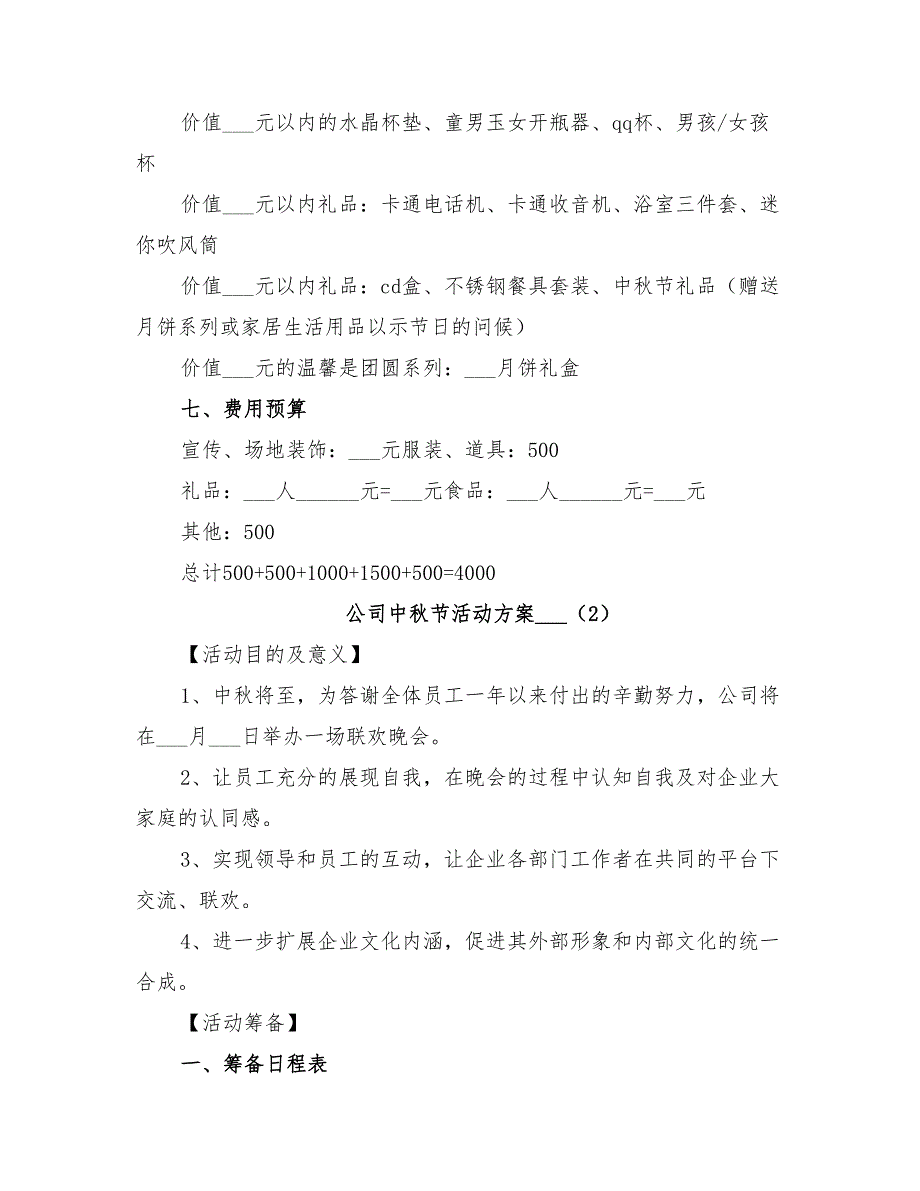 价值___元以内的水晶杯垫、童男玉女开瓶器、qq杯、男孩/女孩
杯
价值___元以内礼品：卡通电话机、卡通收音机、浴室三件套、迷
你吹风筒
价值___元以内礼品：cd盒、不锈钢餐具套装、中秋节礼品（赠送
月饼系列或家居生活用品以示节日的问候）
价值___元的温馨是团圆系列：___月饼礼盒
七、费用预算
宣传、场地装饰：___元服装、道具：500
礼品：___人______元=___元食品：___人______元=___元
其他：500
总计500+500+1000+1500+500=4000
公司中秋节活动方案___（2）
【活动目的及意义】
1、中秋将至，为答谢全体员工一年以来付出的辛勤努力，公司将
在___月___日举办一场联欢晚会。
2、让员工充分的展现自我，在晚会的过程中认知自我及对企业大
家庭的认同感。
3、实现领导和员工的互动，让企业各部门工作者在共同的平台下
交流、联欢。
4、进一步扩展企业文化内涵，促进其外部形象和内部文化的统一
合成。
【活动筹备】
一、筹备日程表